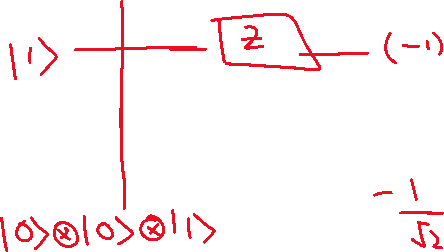 |1⟩ Z (-1)
|0⟩⊗|0⟩⊗|1⟩ -1/√2